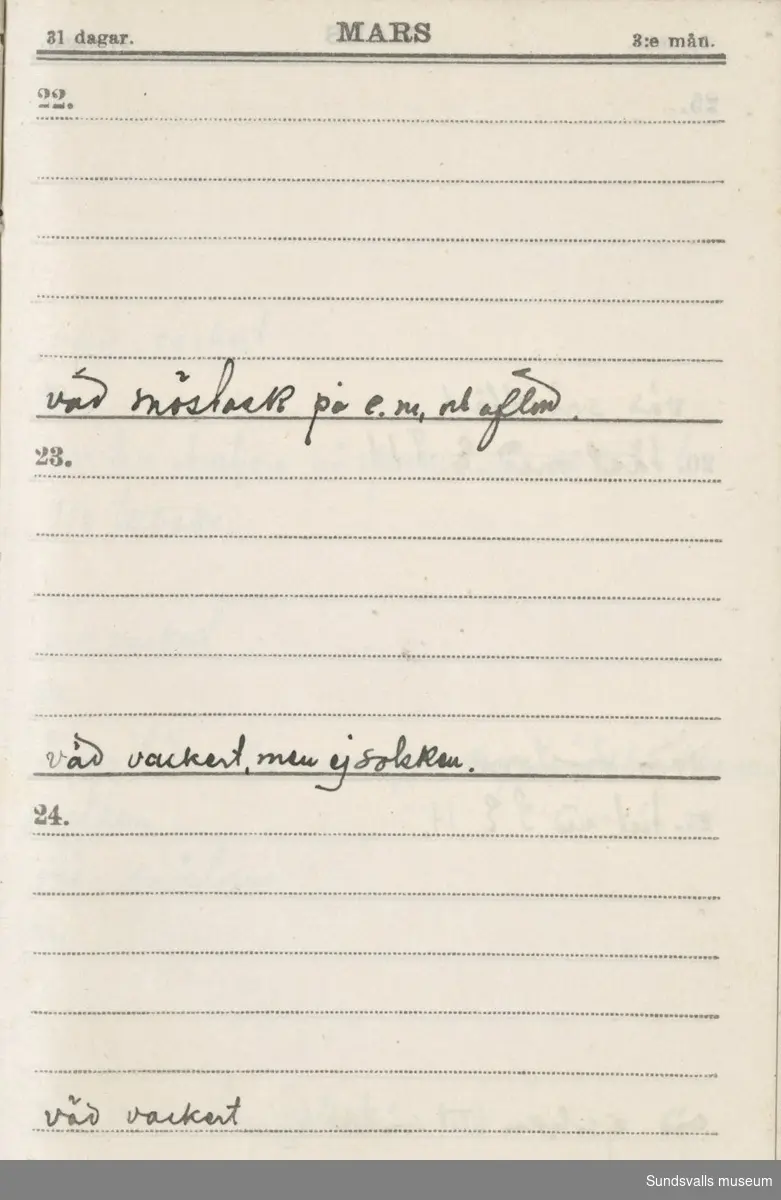 31 dagar. MARS 3:e mån.
22.
väd snöslask på e.m. och afton.
23.
väd vackert, men ej solsken.
24.
väd vackert
Sundsvalls museum